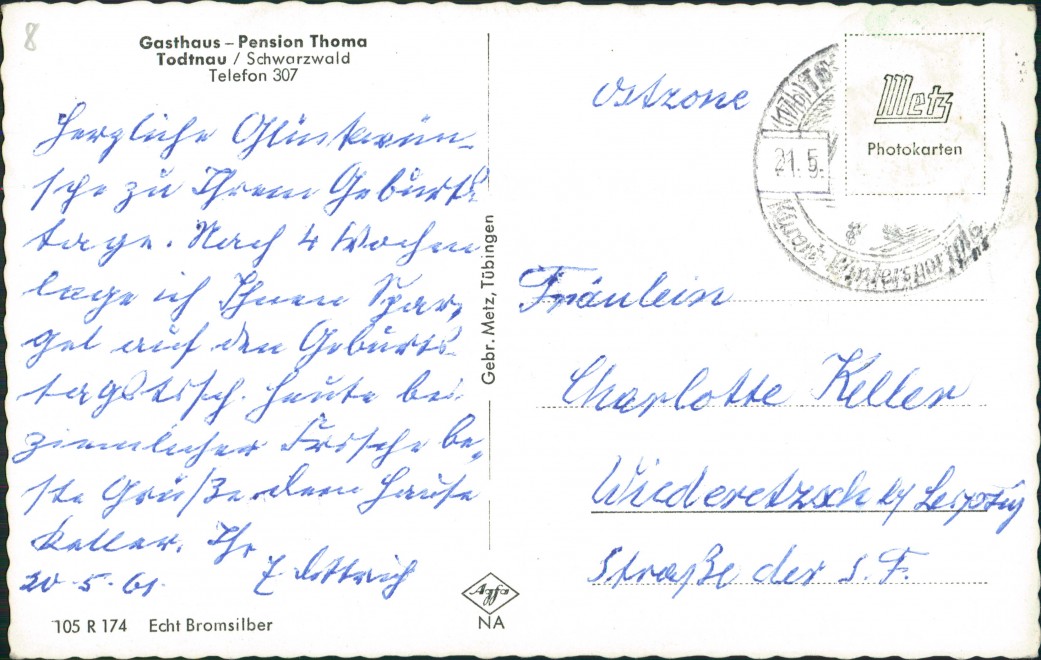 8
Gasthaus – Pension Thoma
Todtnau / Schwarzwald
Telefon 307
Herzliche Glückwün-
sche zu Ihrem Geburts-
tage. Nach 4 Wochen
lege ich Ihnen Spar-
gel auf den Geburts-
tagstisch. Heute bei
ziemlicher Frische be-
ste Grüße dem Hause
Keller. Ihr
20.5.61.
Dittrich
105 R 174 Echt Bromsilber
Gebr. Metz, Tübingen
Agfa
NA
Ostzone
21.5.
Metz
Photokarten
Fräulein
Charlotte Keller
Wiederetzsch b/ Leipzig
Straße der S. F.